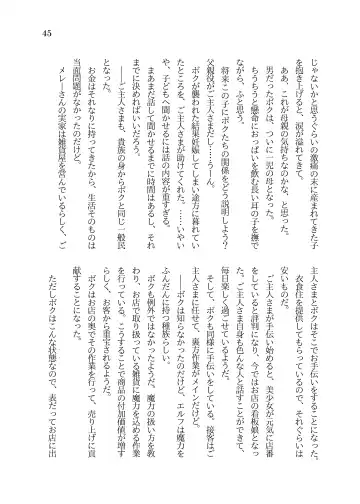 45
じゃないかと思うぐらいの激痛の末に産まれてきた子
を抱き上げると、涙が溢れてきて。
ああ、これが母親の気持ちなのかな、と思った。
男だったボクは、ついに一児の母となった。
ちうちうと懸命におっぱいを飲む長い耳の子を撫で
ながら、ふと思う。
将来この子に、ボクたちの関係をどう説明しよう？
父親役がご主人さまだし……うーん。
ボクが襲われた結果妊娠してしまい途方に暮れてい
たところを、ご主人さまが助けてくれた。……いやい
や、子どもへ聞かせるには話の内容が重すぎる。
まあまだ話して聞かせるまでに時間はあるし、それ
までに決めればいいだろう。
――ご主人さまも、貴族の身からボクと同じ一般民
となった。
お金はそれなりに持ってきたから、生活そのものは
当面問題がなかったのだけど。
メレーさんの実家は雑貨屋を営んでいるらしく、ご
主人さまとボクはそこでお手伝いをすることになった。
衣食住を提供してもらっているので、それぐらいは
安いものだ。
ご主人さまが手伝い始めると、美少女が元気に店番
をしていると評判になり、今ではお店の看板娘となっ
た。ご主人さま自身も色んな人と話すことができて、
毎日楽しく過ごせているようだ。
そして、ボクも同様に手伝いをしている。接客はご
主人さまに任せて、裏方作業がメインだけど。
――ボクは知らなかったのだけど、エルフは魔力を
ふんだんに持つ種族らしい。
ボクも例外ではなかったようだ。魔力の扱い方を教
わり、お店で取り扱っている雑貨に魔力を込める作業
を行っている。こうすることで商品の付加価値が増す
らしく、お客から重宝されるようだ。
ボクはお店の奥でその作業を行って、売り上げに貢
献することになった。
ただしボクはこんな状態なので、表だってお店に出